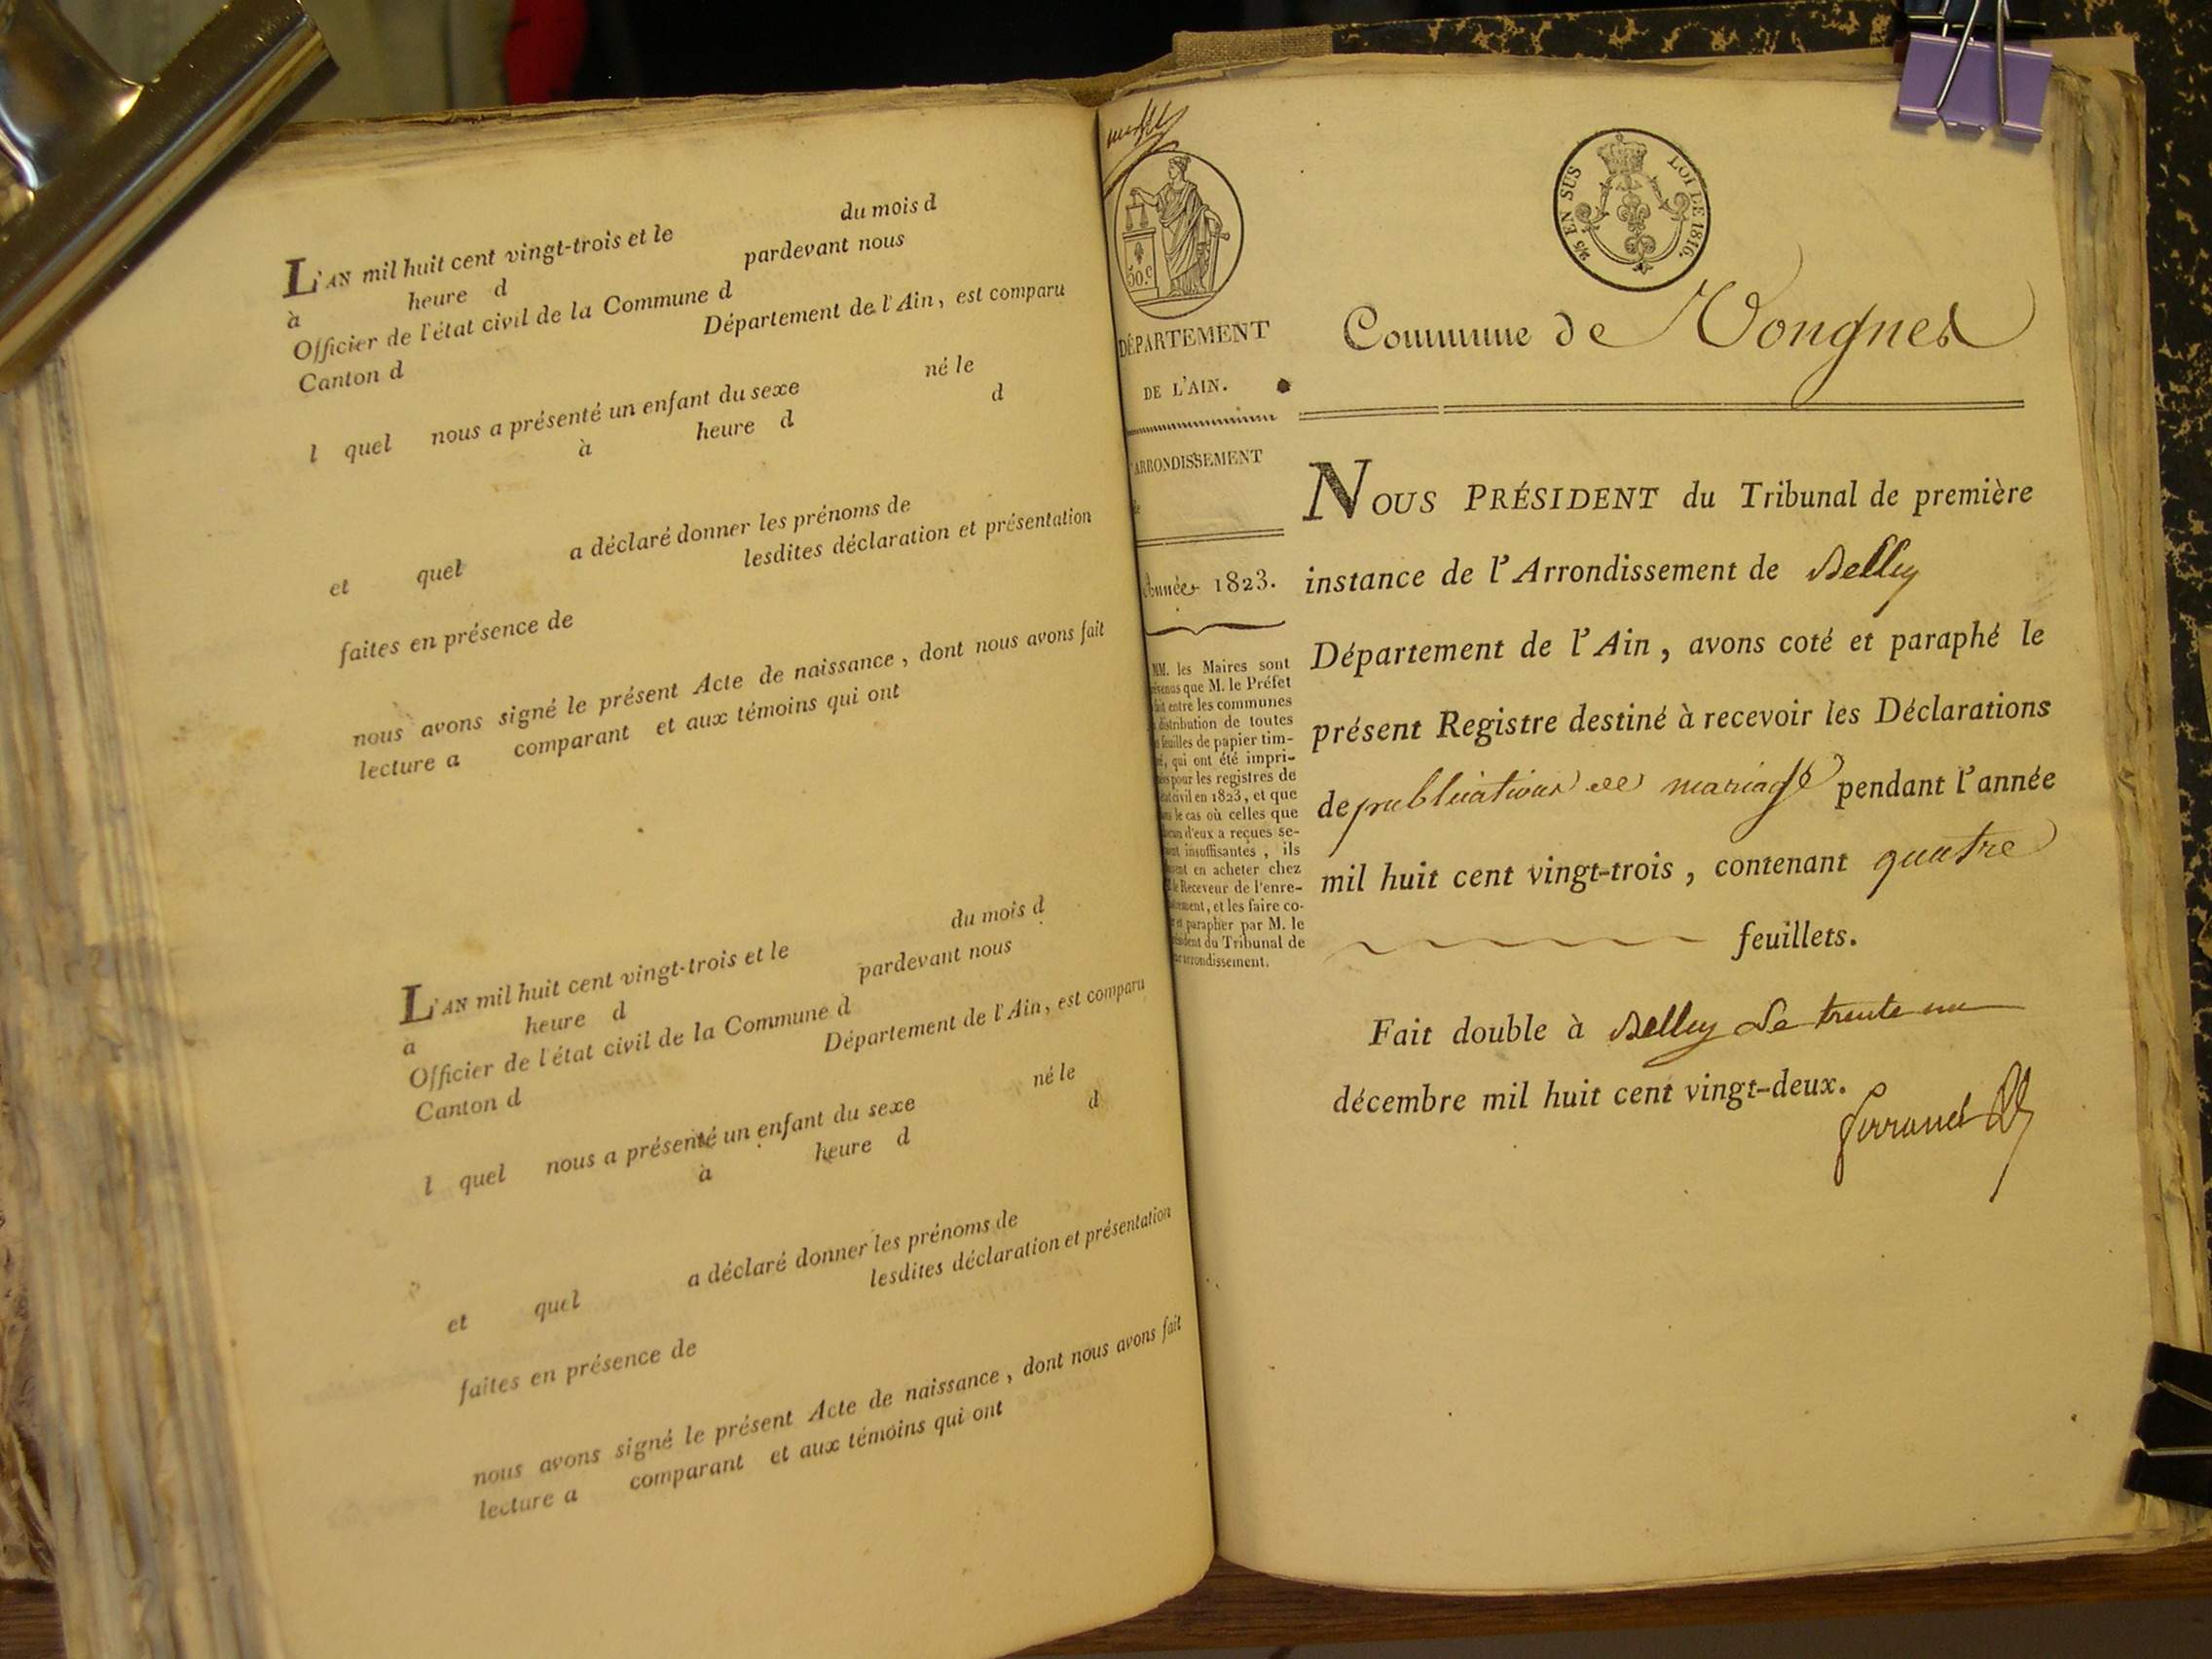 L'AN mil huit cent vingt-trois et le du mois d
à heure d pardevant nous
Officier de l'état civil de la Commune d
Canton d Département de l'Ain, est comparu
l quel nous a présenté un enfant du sexe né le
à heure d d
et quel a déclaré donner les prénoms de
lesdites déclaration et présentation
faites en présence de
nous avons signé le présent Acte de naissance, dont nous avons fait
lecture a comparant et aux témoins qui ont
L'AN mil huit cent vingt-trois et le du mois d
à heure d pardevant nous
Officier de l'état civil de la Commune d
Canton d Département de l'Ain, est comparu
l quel nous a présenté un enfant du sexe né le
à heure d d
et quel a déclaré donner les prénoms de
lesdites déclaration et présentation
faites en présence de
nous avons signé le présent Acte de naissance, dont nous avons fait
lecture a comparant et aux témoins qui ont
50.c
DÉPARTEMENT
DE L'AIN.
ARRONDISSEMENT
de
Année 1823.
MM. les Maires sont
que M. le Préfet
entre les communes
distribution de toutes
feuilles de papier tim-
qui ont été impri-
pour les registres de
civil en 1823, et que
le cas où celles que
d'eux a reçues se-
insuffisantes, ils
en acheter chez
le Receveur de l'enre-
et les faire co-
et parapher par M. le
du Tribunal de
arrondissement.
EN SUS LOI DE 1816.
Commune de Vongnes
NOUS PRÉSIDENT du Tribunal de première
instance de l'Arrondissement de Belley
Département de l'Ain, avons coté et paraphé le
présent Registre destiné à recevoir les Déclarations
de publications de mariage pendant l'année
mil huit cent vingt-trois, contenant quatre
feuillets.
Fait double à Belley Le trente un
décembre mil huit cent vingt-deux.